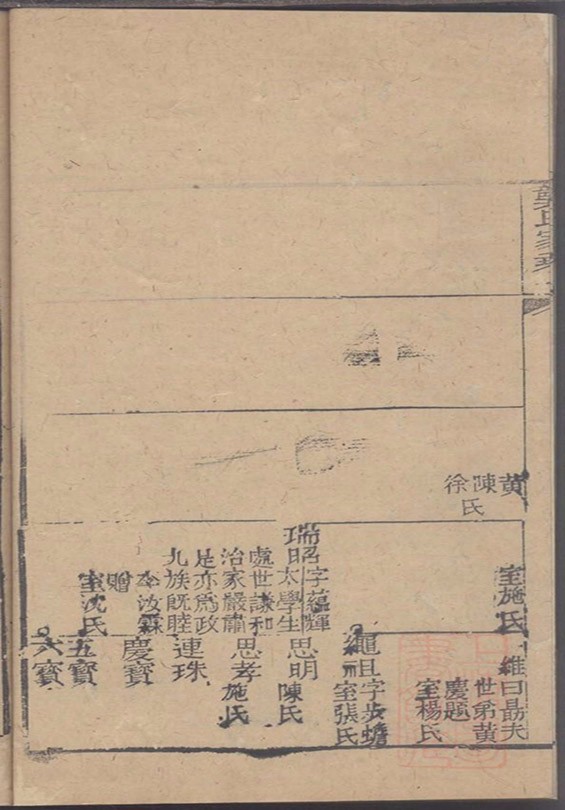 黄
陳
徐
氏
室施氏
維曰勗夫
世弟黄
慶題
室楊氏
繩且字步蟾
室張氏
瑞昭字蘊輝
太學生
處世謙和
治家嚴肅
是亦為政
九族既睦
李汝霖
贈
室沈氏
思明
陳氏
思孝
施氏
連珠
慶寶
五寶
六寶